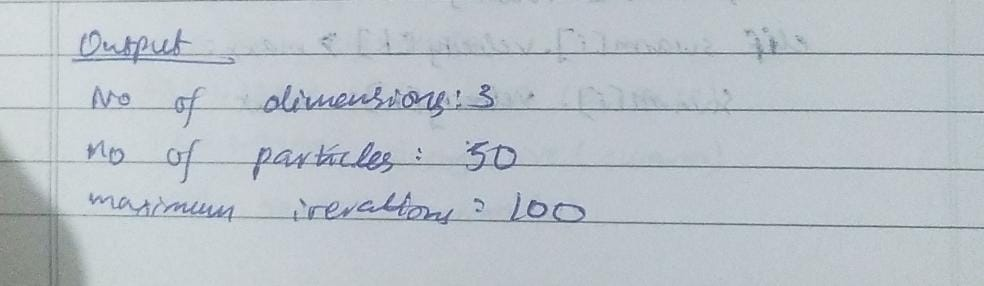 Output
No of dimensions: 3
no of particles: 50
maximum iterations: 100